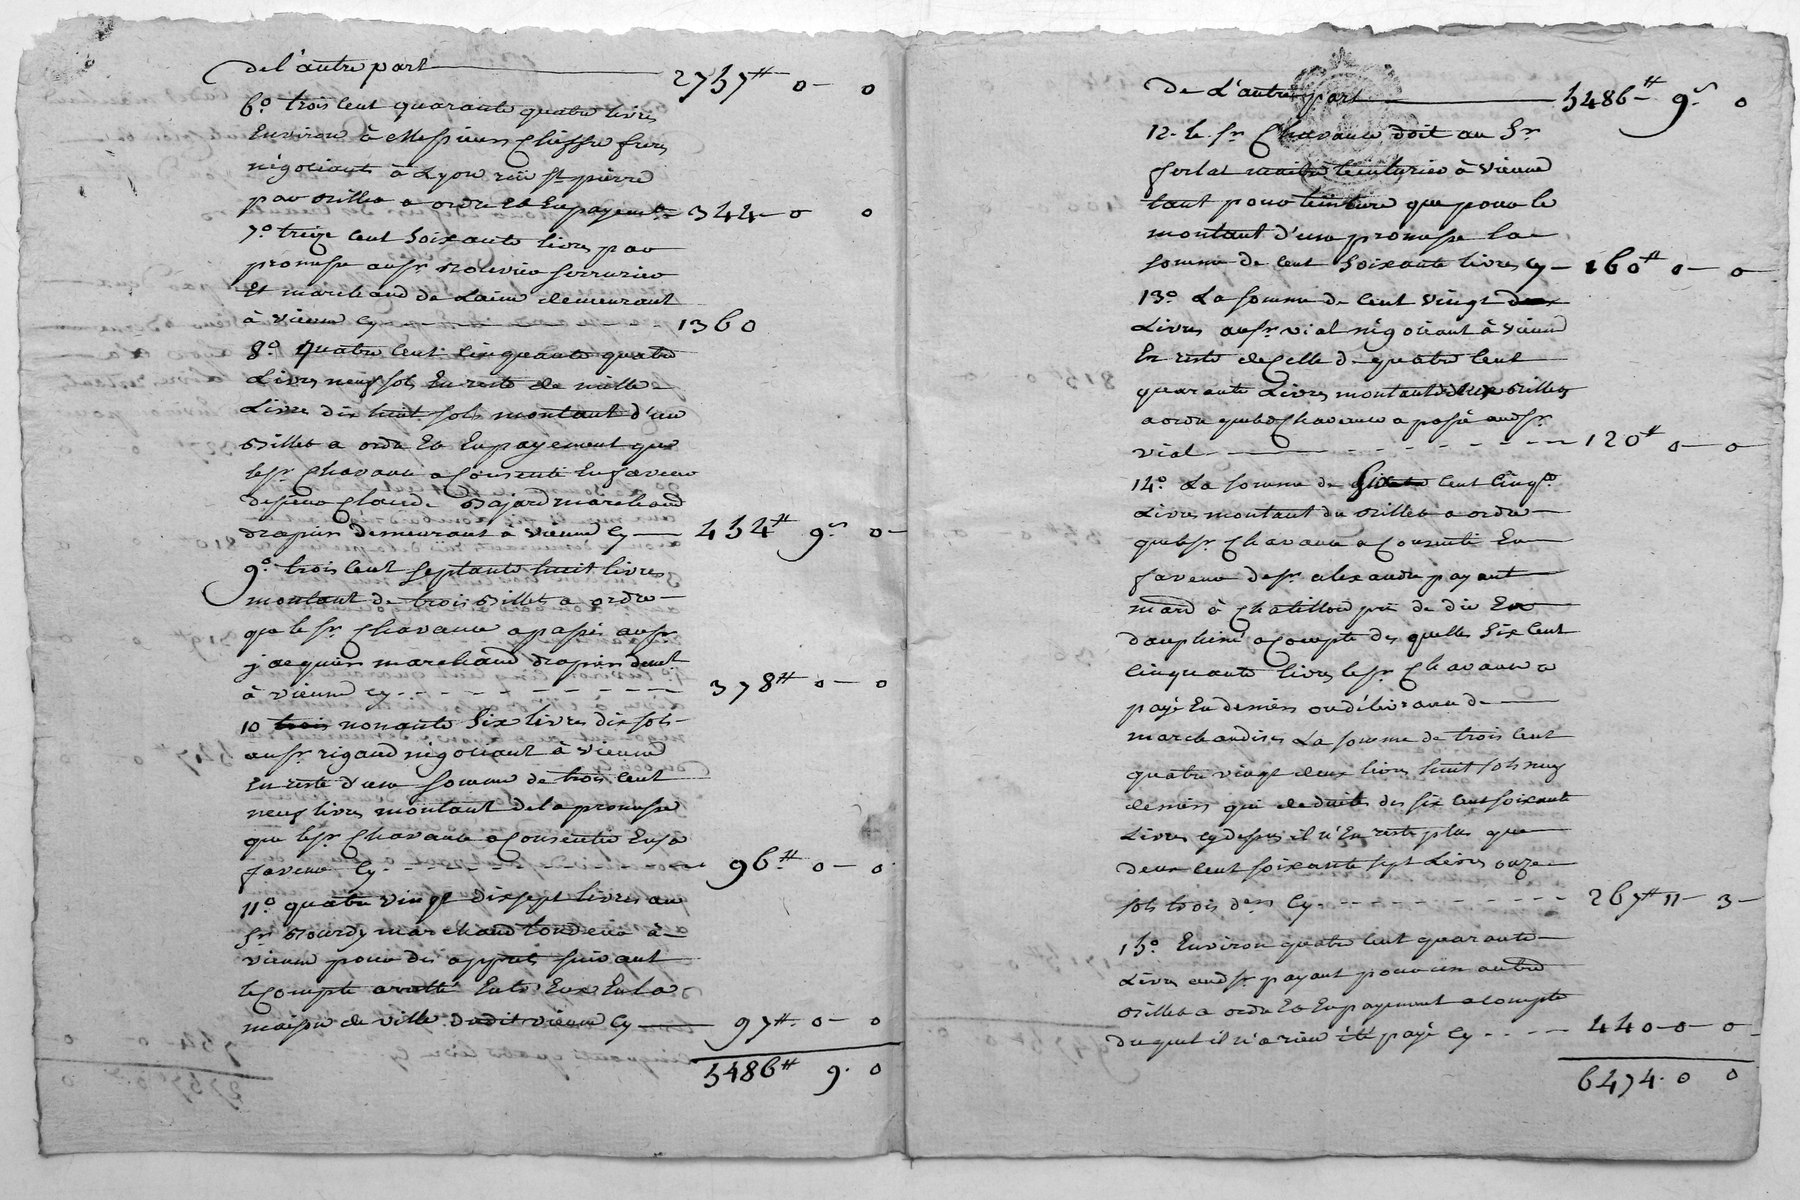 de l'autre part 2757# 0 - 0
6.º trois cent quarante quatre livres
Environ à Messieurs freres
négotiants à Lyon rüe St pierre
par billet a ordre Et En payement 344 - 0 0
7.º treize cent soixante livres par
promesse au sr serrurier
Et marchand de Laine demeurant
à vienne cy 1360
8.º quatre cent cinquante quatre
Livres neuf sols En reste de mille
Livre dix huit sols montant d'un
billet a ordre Et En payement que
le sr Chavance a Consenti En faveur
de sieur Claude Bajard marchand
drapier demeurant à vienne cy 454# 9s 0 -
9.º trois cent septante huit livres
montant de trois billet a ordre
que le sr Chavance a passés au sr
jacquier marchand drapier demt
à vienne cy 378# 0 - 0
10 nonante six livres dix sols
au sr rigaud négotiant à vienne
En reste d'une somme de trois cent
neuf livres montant de la promesse
que le sr Chavance a Consentie En sa
faveur cy 96# 0 - 0
11.º quatre vingt dix sept livres au
sr Bourdy marchand tondeur à
vienne pour des apprets suivant
le Compte arretté Entr Eux En la
maison de ville dudit vienne cy 97# 0 - 0
5486# 9. 0
De L'autre part 5486# 9s 0
12. le sr Chavance doit au sr
forlat maitre teinturier à vienne
tant pour teinture que pour le
montant d'une promesse la
somme de cent soixante livres cy 160# 0 - 0
13.º La somme de cent vingt
Livres au sr vial négotiant à vienne
En reste de Celle de quatre cent
quarante Livres montant billets
a ordre que led Chavance a passé aud sr
vial 120# 0 - 0
14.º La somme de Six cent cinqte
Livres montant du billet a ordre
que le sr Chavance a Consenti En
faveur de sr alexandre payant
mard à Chatillon près de die En
dauphiné a Compte des quelles six cent
cinquante livres le sr Chavance a
payé En deniers ou délivrance de
marchandises La somme de trois cent
quatre vingt deux livres huit sols neuf
deniers qui deduites des six cent soixante
Livres cy dessus il n'En reste plus que
deux cent soixante sept Livres onze
sols trois ders cy 267# 11 - 3 -
15.º Environ quatre cent quarante
Livres aud sr payant pour un autre
billet a ordre Et En payement a Compte
duquel il n'a rien été payé cy 440 - 0 - 0 -
6474. 0 0